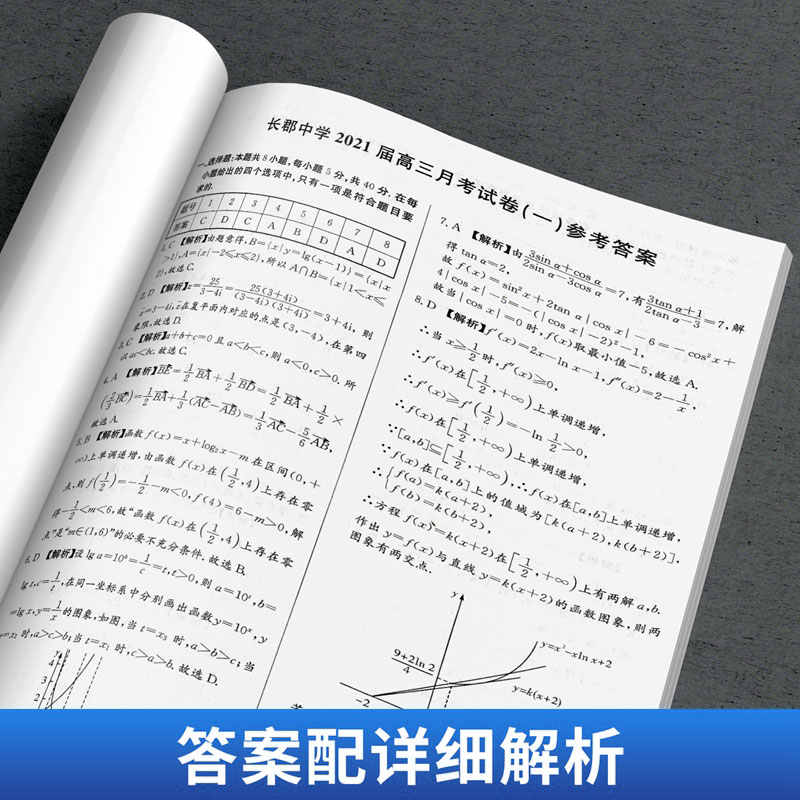 长郡中学 2021 届高三月考试卷(一)参考答案
一、选择题:本题共 8 小题,每小题 5 分,共 40 分.在每
小题给出的四个选项中,只有一项是符合题目要
求的.
题号 1 2 3 4 5 6 7 8
答案 C D C A B D A D
1. C 【解析】由题意得,B={x|y=lg(x-1)}={x|x
>1},A={x|-2≤x≤2},所以 A∩B={x|1<x≤
2},故选 C.
2. D 【解析】z=25/(3-4i)=25(3+4i)/((3-4i)(3+4i))=3+4i, 则
z̄=3-4i,z̄在复平面内对应的点是(3,-4),在第四
象限,故选 D.
3. C 【解析】a+b+c=0 且 a<b<c,则 a<0,c>0. 所
以 ac<bc. 故选 C.
4. A 【解析】BE=1/2 BA+1/2 BD=1/2 BA+1/2×
(5/3 BC)=1/2 BA+5/6(AC-AB)=
故选 A.
5. B 【解析】函数 f(x)=x+log₂x-m 在区间(0,+
∞)上单调递增,由函数 f(x)在(1/2,4)上存在零
点,则 f(1/2)=-1/2-m<0,f(4)=6-m>0,解
得-1/2<m<6,故“函数 f(x)在(1/2,4)上存在零
点”是“m∈(1,6)”的必要不充分条件. 故选 B.
6. D 【解析】设 lg a=10ᵇ=1/c=t,t>0,则 a=10ᵗ,b=
lg t,c=1/t,在同一坐标系中分别画出函数 y=10ˣ,y
=lg x,y=1/x 的图象,如图,当 t=x₃ 时,a>b>c;当
t=x₂ 时,a>c>b;当 t=x₁ 时,c>a>b. 故选 D.
y
4
3
2
7. A 【解析】由(3sin α+cos α)/(2sin α-3cos α)=7,有(3tan α+1)/(2tan α-3)=7,解
得 tan α=2,
故 f(x)=sin²x+2tan α|cos x|-6=-cos²x+
4|cos x|-5=-(|cos x|-2)²-1,
故当|cos x|=0 时,f(x)取最小值-5,故选 A.
8. D 【解析】f′(x)=2x-ln x-1,f″(x)=2-1/x,
∴当 x≥1/2 时,f″(x)≥0,
∴f′(x)在[1/2,+∞)上单调递增,
∴f′(x)≥f′(1/2)=-ln 1/2>0,
∴f(x)在[1/2,+∞)上单调递增,
∵[a,b]⊆[1/2,+∞),∴f(x)在[a,b]上单调递增,
∵f(x)在[a,b]上的值域为[k(a+2),k(b+2)],
∴{f(a)=k(a+2),
f(b)=k(b+2),
∴方程 f(x)=k(x+2)在[1/2,+∞)上有两解 a,b.
作出 y=f(x)与直线 y=k(x+2)的函数图象,则两
图象有两交点.
y
9+2ln 2
4
y=x²-xln x+2
y=k(x+2)
-2
答案配详细解析